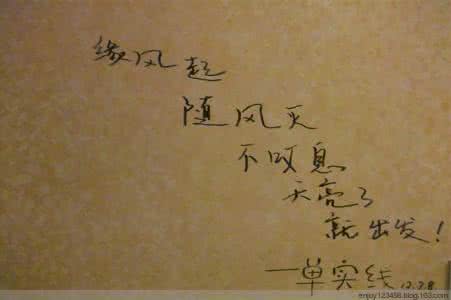 缘风起
随风灭
不叹息
天亮了
就出发!
一单实线 12.7.8
enjoy123456.blog.163.com